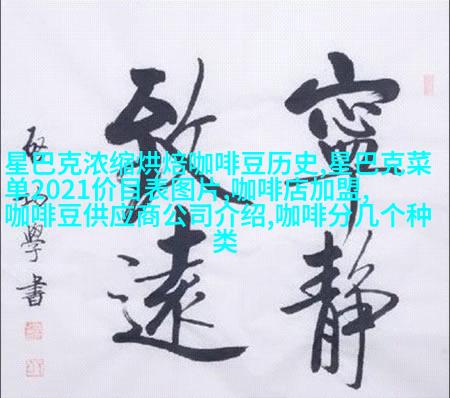 寧靜
致遠
學書
星巴克浓缩烘焙咖啡豆历史,星巴克菜
单2021价目表图片,咖啡店加盟,
咖啡豆供应商公司介绍,咖啡分几个种
类